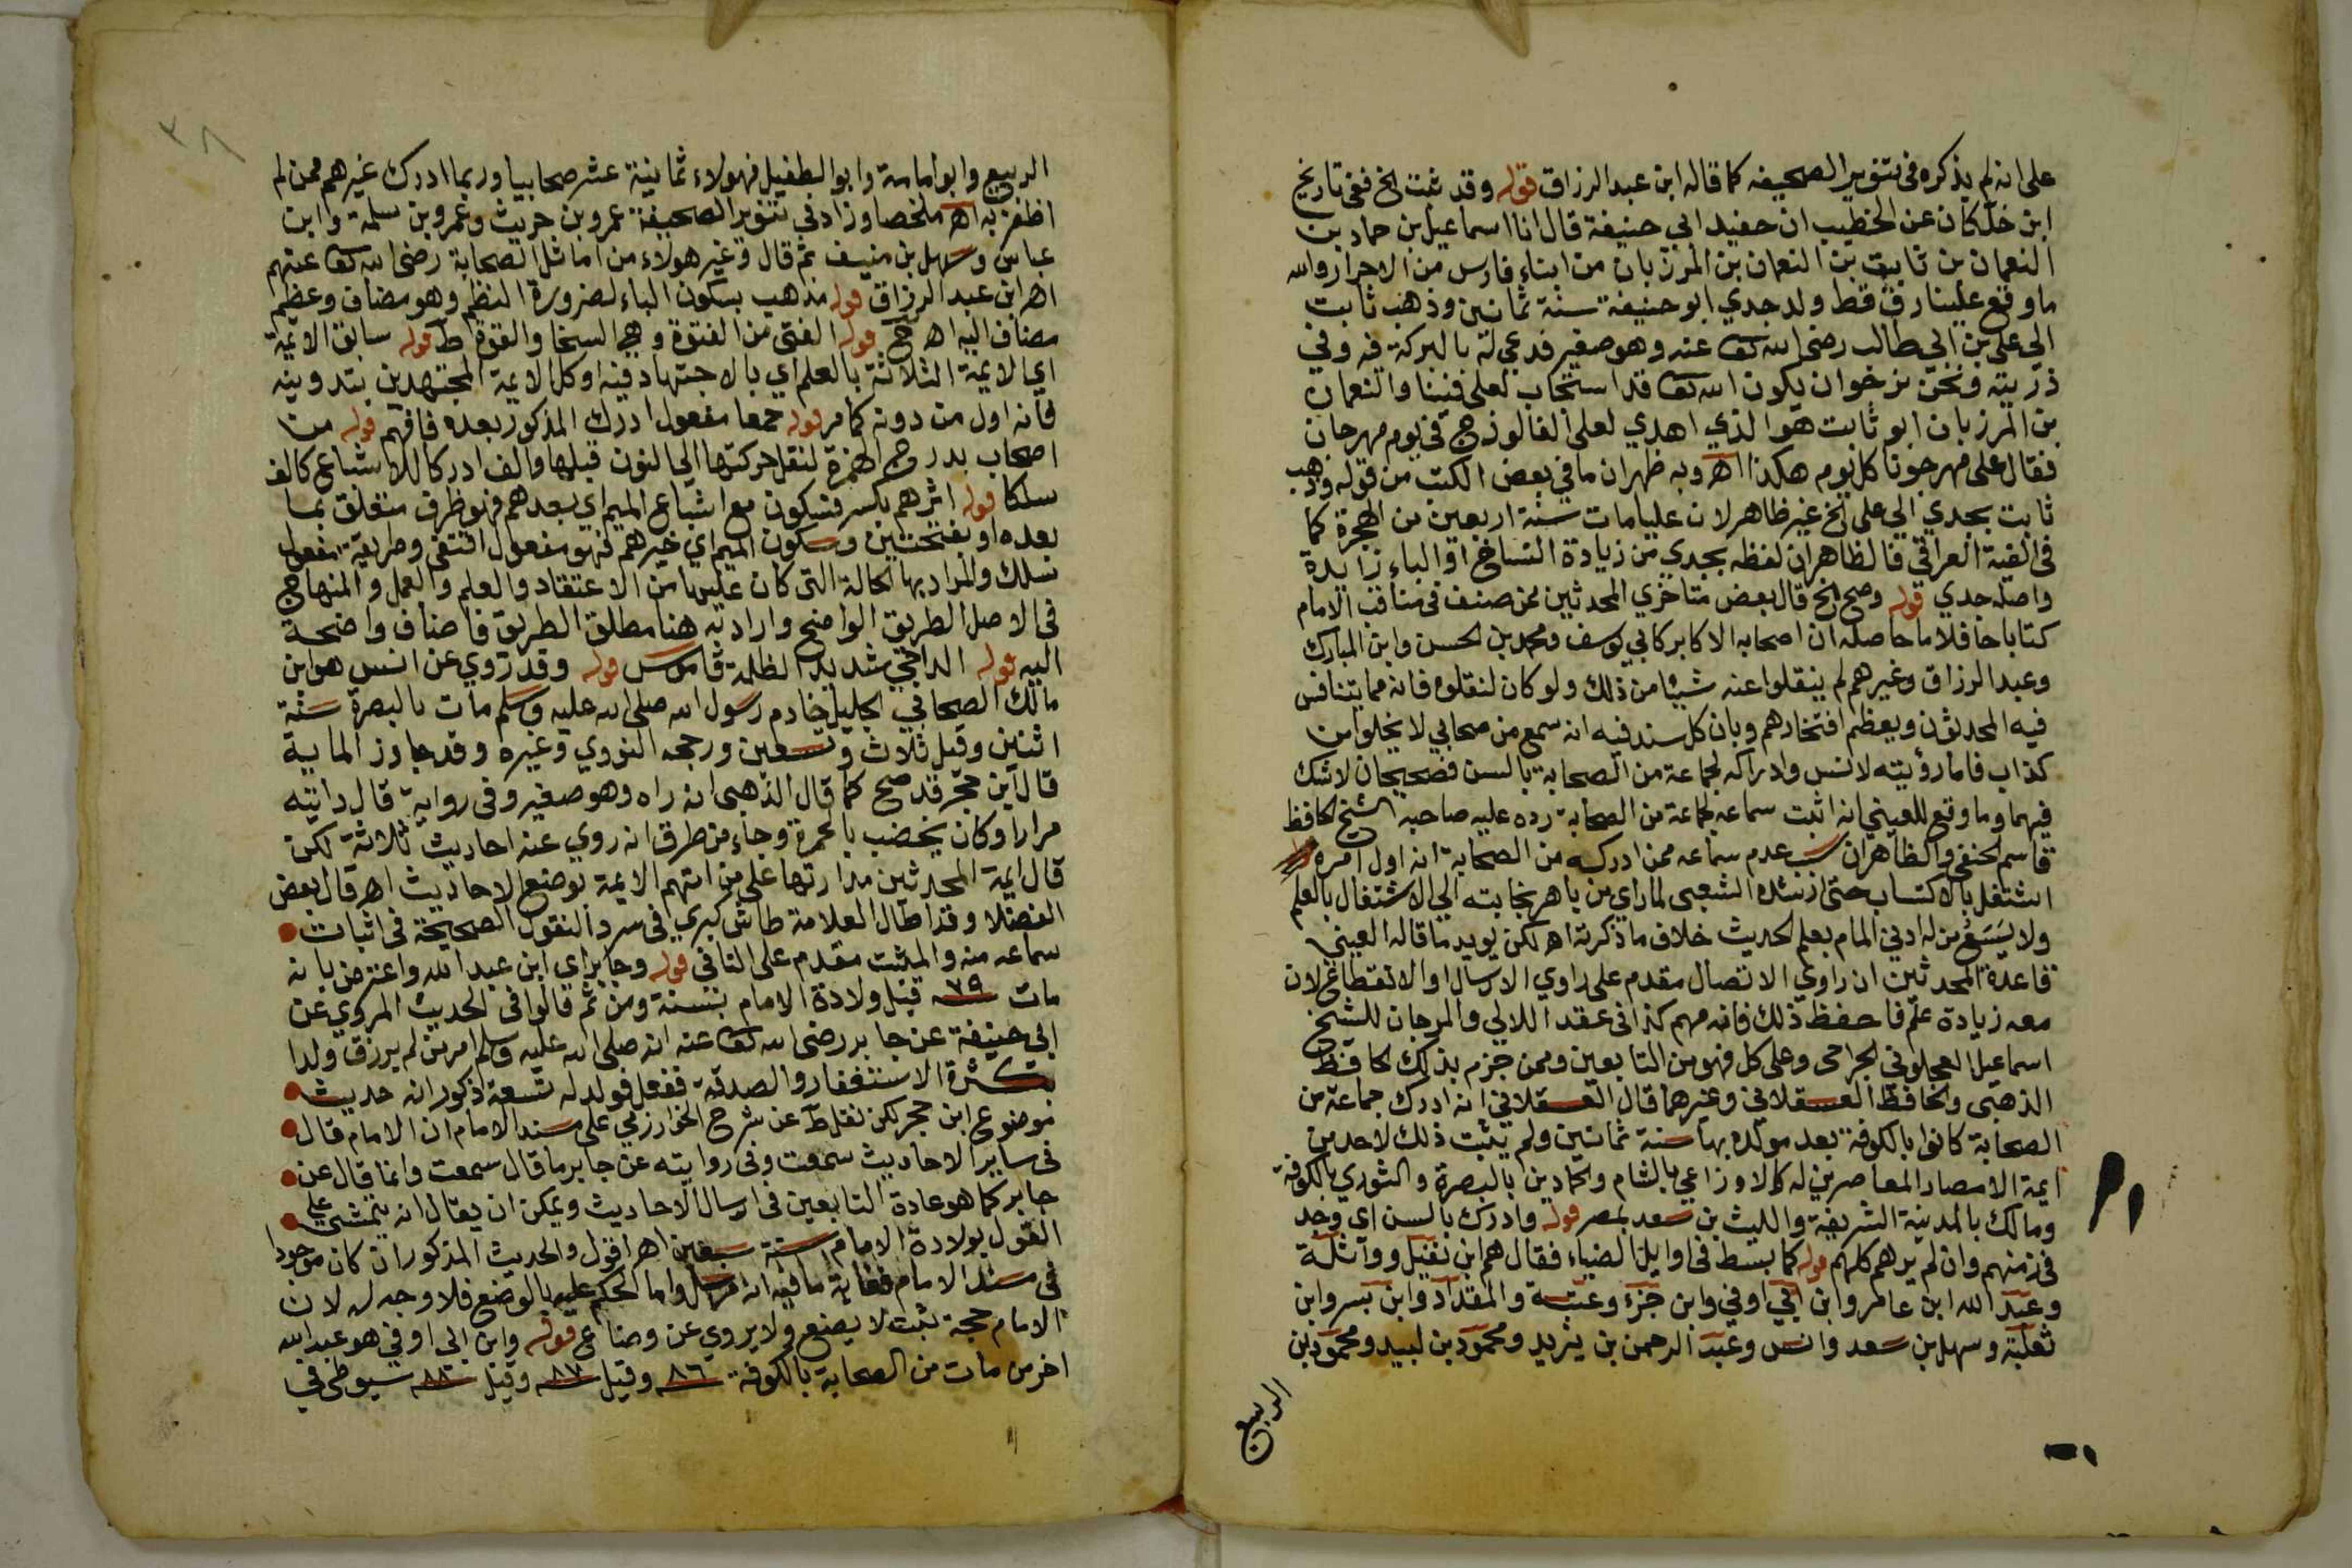 على انه لم يذكره في تنوير الصحيفه كما قاله ابن عبد الرزاق قوله وقد ثبت الخ ففي تاريخ
ابن خلكان عن الخطيب ان حفيد ابي حنيفة قال انا اسماعيل بن حماد بن
النعمان بن ثابت بن النعمان بن المرزبان من ابناء فارس من الاحرار والله
ما وقع علينا رق قط ولد جدي ابو حنيفة سنة ثمانين وذهب ثابت
الي علي بن ابي طالب رضي الله تعا عنه وهو صغير فدعي له بالبركة فيه وفي
ذريته ونحن نرجوا ان يكون الله تعا قد استجاب لعلي فينا والنعمان
بن المرزبان ابو ثابت هو الذي اهدي لعلي الفالوذج في يوم مهرجان
فقال علي مهرجونا كل يوم هكذا اهـ وبه ظهر ان ما في بعض الكتب من قوله وذهب
ثابت بجدي الي علي الخ غير ظاهر لان عليا مات سنة اربعين من الهجرة كما
في الفية العراقي فالظاهر ان لفظه بجدي من زيادة النساخ او الباء زايدة
واصله جدي قوله وصح الخ قال بعض متاخري المحدثين ممن صنف في مناقب الامام
كتابا حافلا ما حاصله ان اصحابه الاكابر كابي يوسف ومحمد بن الحسن وابن المبارك
وعبد الرزاق وغيرهم لم ينقلوا عنه شيئا من ذلك ولو كان لنقلوه فانه مما يتنافس
فيه المحدثون ويعظم افتخارهم وبان كل سند فيه انه سمع من صحابي لا يخلوا من
كذاب فاما رؤيته لانس وادراكه لجماعة من الصحابة بالسن فصحيحان لا شك
فيهما وما وقع للعيني انه اثبت سماعه لجماعة من الصحابة رده عليه صاحبه الشيخ الحافظ
قاسم الحنفي والظاهر ان سبب عدم سماعه ممن ادركه من الصحابة انه اول امره
اشتغل بالاكتساب حتى ارشده الشعبي لما راي من باهر نجابته الي الاشتغال بالعلم
ولا يسع من له ادني المام بعلم الحديث خلاف ما ذكرته اهـ لكن يويد ما قاله العيني
قاعدة المحدثين ان راوي الاتصال مقدم على راوي الارسال او الانقطاع لان
معه زيادة علم فاحفظ ذلك فانه مهم كذا في عقد اللالي والمرجان للشيخ
اسماعيل العجلوني الجراحي وعلى كل فهو من التابعين وممن جزم بذلك الحافظ
الذهبي والحافظ العسقلاني وغيرهما قال العسقلاني انه ادرك جماعة من
الصحابة كانوا بالكوفة بعد مولده بها سنة ثمانين ولم يثبت ذلك لاحد من
ايمة الامصار المعاصرين له كالاوزاعي بالشام والحمادين بالبصرة والثوري بالكوفة
ومالك بالمدينة الشريفة والليث بن سعد بمصر قوله وادرك بالسن اي وجد
في زمنهم وان لم يرهم كلهم قوله كما بسط في اوايل الضياء فقال هم ابن نفيل وواثلة
وعبد الله ابن عامر وابن ابي اوفي وابن جزء وعتبة والمقداد وابن بسر وابن
ثعلبة وسهل بن سعد وانس وعبد الرحمن بن يزيد ومحمود بن لبيد ومحمود بن
الربيع
٣٨
الربيع وابو امامة وابو الطفيل فهولاء ثمانية عشر صحابيا وربما ادرك غيرهم ممن لم
اظفر به اهـ ملخصا وزاد في تنوير الصحيفة عمرو بن حريث وعمرو بن سلمة وابن
عباس وسهل بن منيف ثم قال وغير هولاء من اماثل الصحابة رضي الله تعا عنهم
اهـ ابن عبد الرزاق قوله مذهب بسكون الباء لضرورة النظم وهو مضاف وعظم
مضاف اليه اهـ ح قوله الفتى من الفتوة وهي السخا والقوة ط قوله سابق الائمة
اي الايمة الثلاثة بالعلم اي بالاجتهاد فيه او كل الايمة المجتهدين بتدوينه
فانه اول من دونه كما مر قوله جمعا مفعول ادرك المذكور بعده فافهم قوله من
اصحاب بدرج الهمزة لنقل حركتها الي النون قبلها والف ادركا للاشباع كالف
سلكا قوله اثرهم بكسر فسكون مع اشباع الميم اي بعدهم فهو ظرف متعلق بما
بعده او بفتحتين وسكون الميم اي خبرهم فهو مفعول اقتفى وطريقة مفعول
سلك والمراد بها الحالة التي كان عليها من الاعتقاد والعلم والعمل والمنهاج
في الاصل الطريق الواضح واراد به هنا مطلق الطريق فاضاف واضحة
اليه قوله الداجي شديد الظلمة قاموس قوله وقد روي عن انس هو ابن
مالك الصحابي الجليل خادم رسول الله صلى الله عليه وسلم مات بالبصرة سنة
اثنين وقيل ثلاث وتسعين ورجحه النووي وغيره وقد جاوز الماية
قال ابن حجر قد صح كما قال الذهبي انه راه وهو صغير وفي رواية قال رايته
مرارا وكان يخضب بالحمرة وجاء من طرق انه روي عنه احاديث ثلاثة لكن
قال ايمة المحدثين مدارها على من اتهم الايمة بوضع الاحاديث اهـ قال بعض
الفضلا وقد اطال العلامة طاش كبري في سرد النقول الصحيحة في اثبات
سماعه منه والمثبت مقدم على النافي قوله وجابر اي ابن عبد الله واعترض بانه
مات ٧٩ قبل ولادة الامام بسنة ومن ثم قالوا في الحديث المروي عن
ابي حنيفة عن جابر رضي الله تعا عنه انه صلى الله عليه وسلم امر من لم يرزق ولدا
بكثرة الاستغفار والصدقة ففعل فولد له تسعة ذكور انه حديث
موضوع ابن حجر لكن نقل ط عن شرح الخوارزمي على مسند الامام ان الامام قال
في ساير الاحاديث سمعت وفي روايته عن جابر ما قال سمعت وانما قال عن
جابر كما هو عادة التابعين في ارسال الاحاديث ويمكن ان يقال انه يتمشى على
القول بولادة الامام سنة سبعين اهـ اقول والحديث المذكور ان كان موجودا
في مسند الامام فغاية ما فيه انه مرسل واما الحكم عليه بالوضع فلا وجه له لان
الامام حجة ثبت لا يضع ولا يروي عن وضاع قوله وابن ابي اوفي هو عبد الله
اخر من مات من الصحابة بالكوفة ٨٦ وقيل ٨٧ وقيل ٨٨ سيوطي في